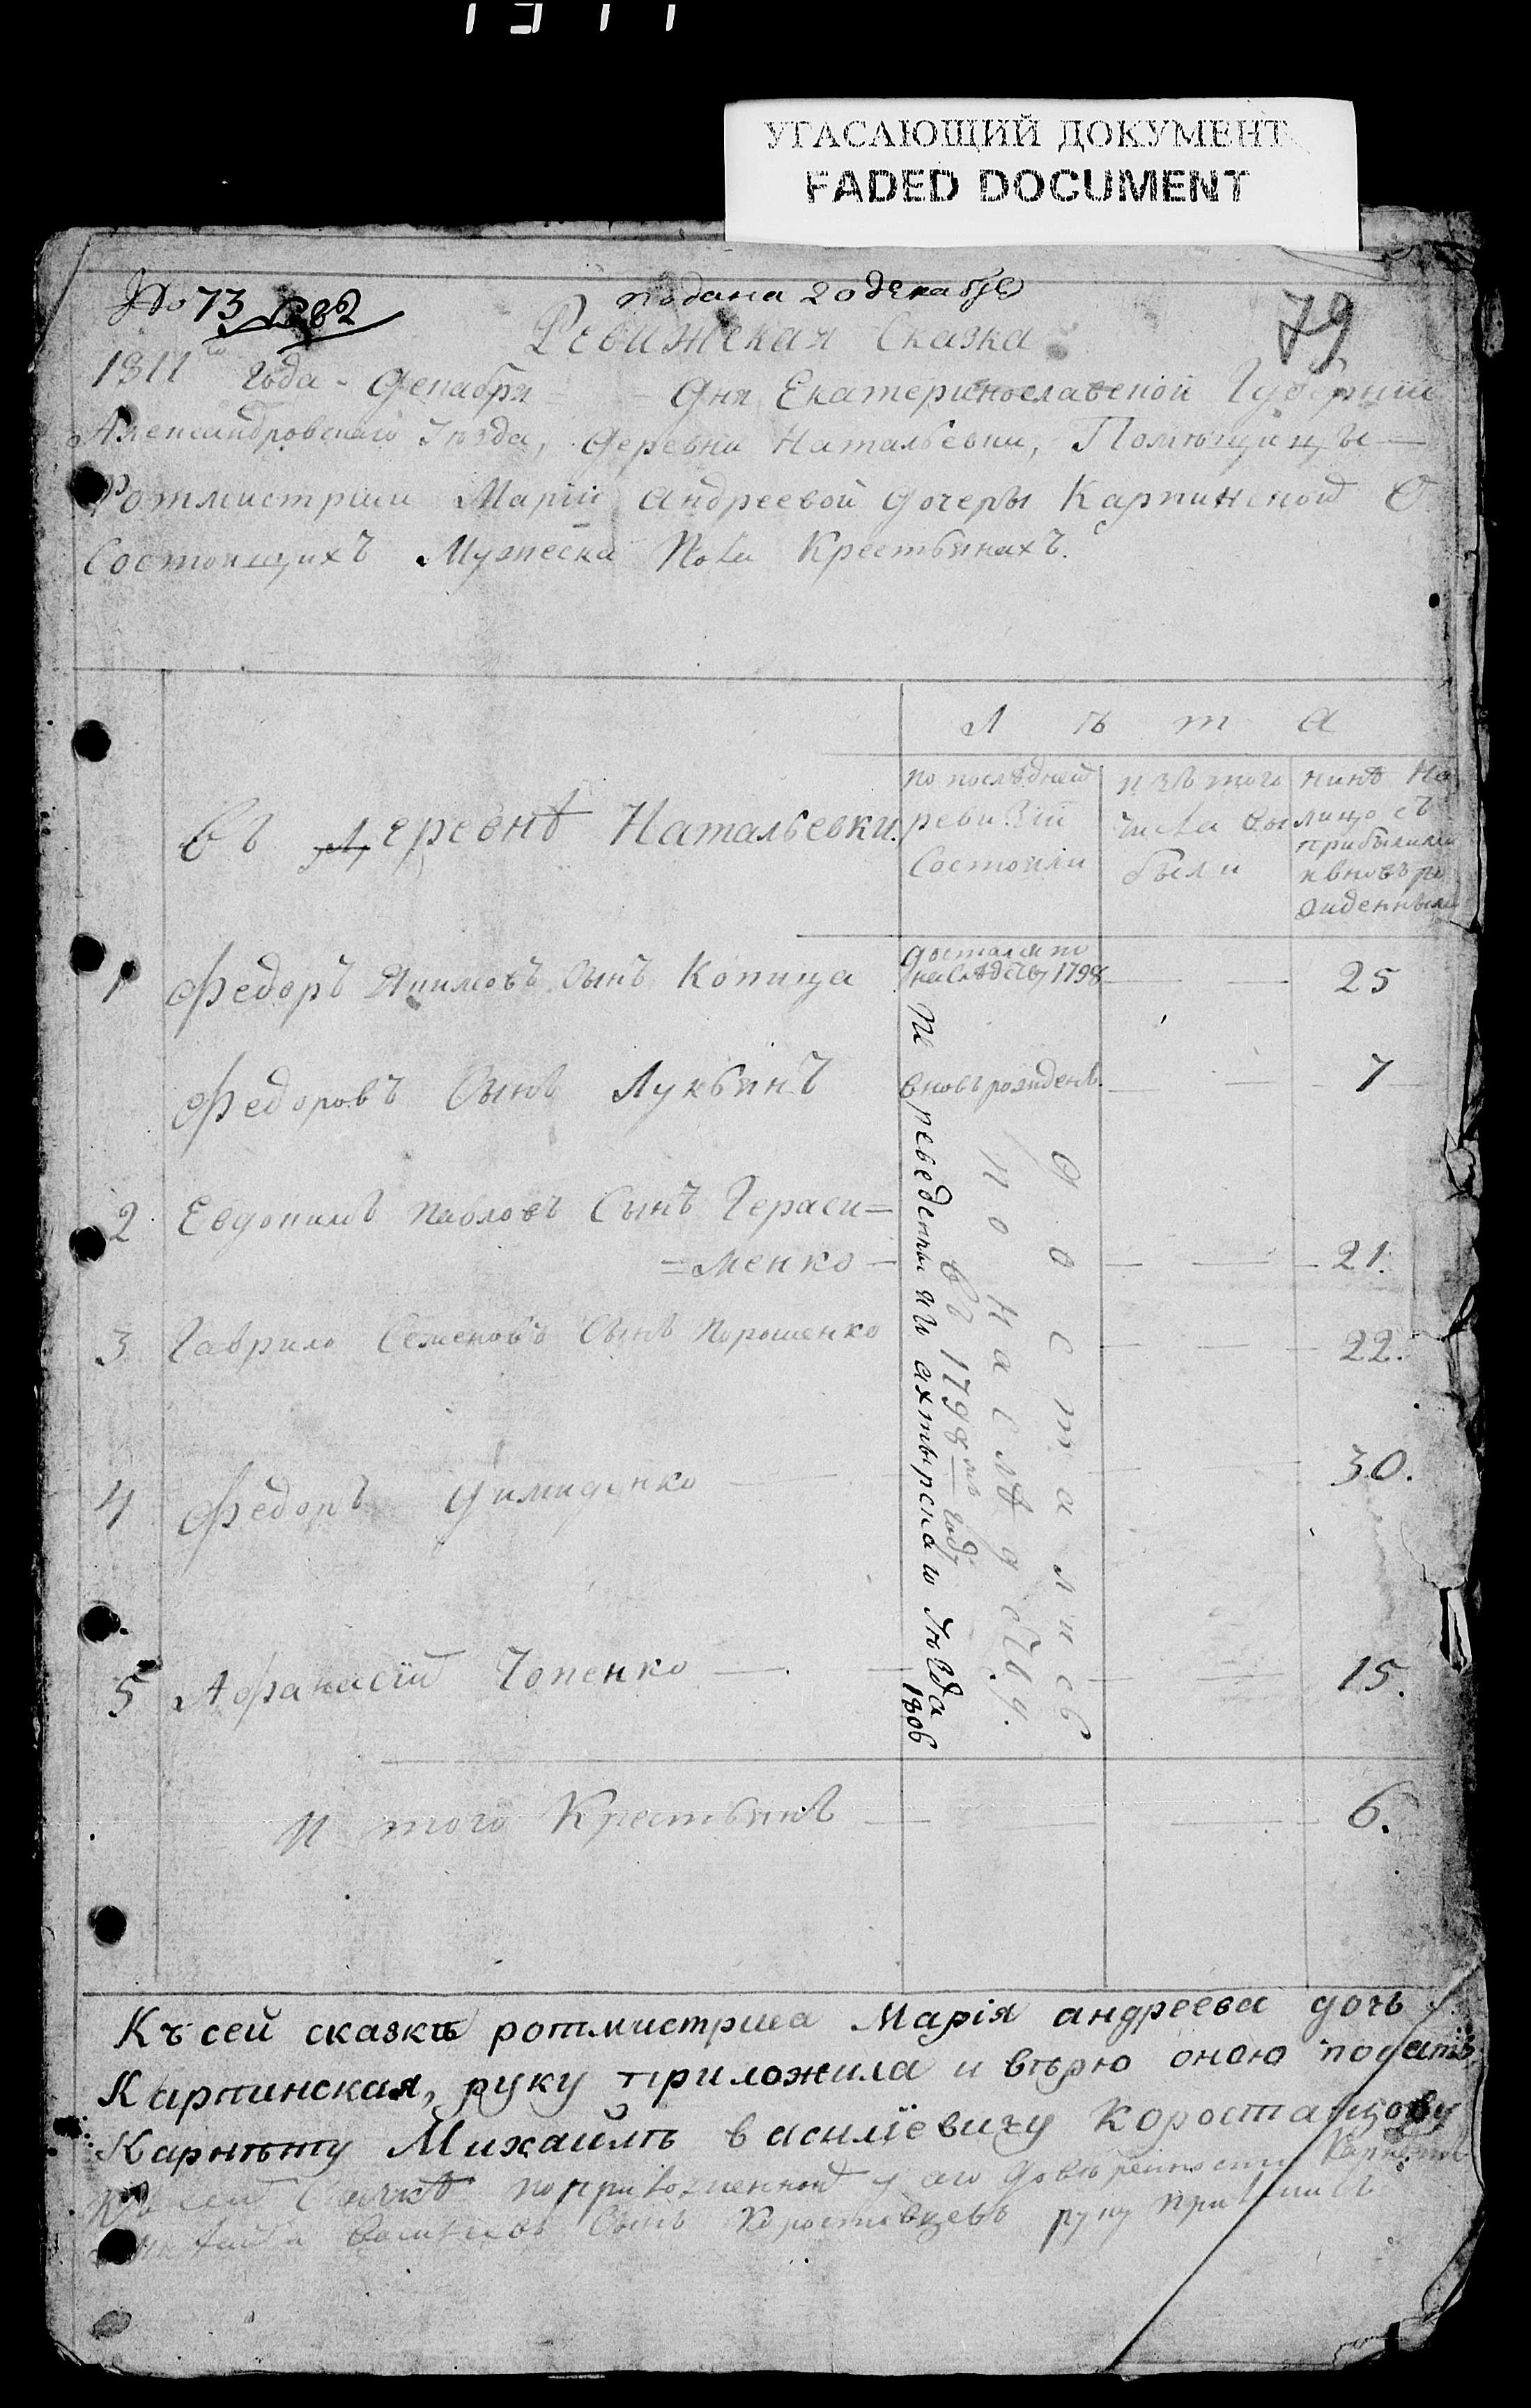 УГАСАЮЩИЙ ДОКУМЕНТ
FADED DOCUMENT
№ 73
подана 20 декабря
79
Ревижская Сказка
1811го года - Декабря — Дня Екатеринославской Губернии
Александровскаго Уѣзда, Деревни Натальевки, Помѣщицы —
Ротмистрши Маріи Андреевой дочеры Карпинской О
Состоящихъ Мужеска Пола Крестьянахъ.
Л ѣ т а
Въ Деревнѣ Натальевки.
по послѣдней
ревизіи
Состояли
изъ того
числа вы
были
нинѣ На
лицо съ
прибылими
и вновь ро
жиденными
1 Федоръ Якимовъ Сынъ Копица
достался по
наследству 1798
— — 25
Федоровъ Сынъ Лукьянъ вновь рожиденъ — — 7
2 Евдокимъ Павловъ Сынъ Гераси=
=менко — — — 21.
3 Гаврило Семеновъ Сынъ Порошенко — — 22.
4 Федоръ Димиденко — — 30.
5 Афанасій Чопенко — — 15.
достались
по наслѣдству.
въ 1798мъ году
Переведены изъ ахтырскаго уѣзда 1806
И того Крестьянъ — — 6.
Къ сей сказкѣ ротмистрша Марія андреева дочь
Карпинская, руку приложила и вѣрю оною подать
Карнѣту Михаилѣ василіевичу Коростовцову
Къ сей Сказкѣ по приложенной у аго довѣренности Карнетъ
Васильевъ Сынъ Коростовцевъ руку приложилъ